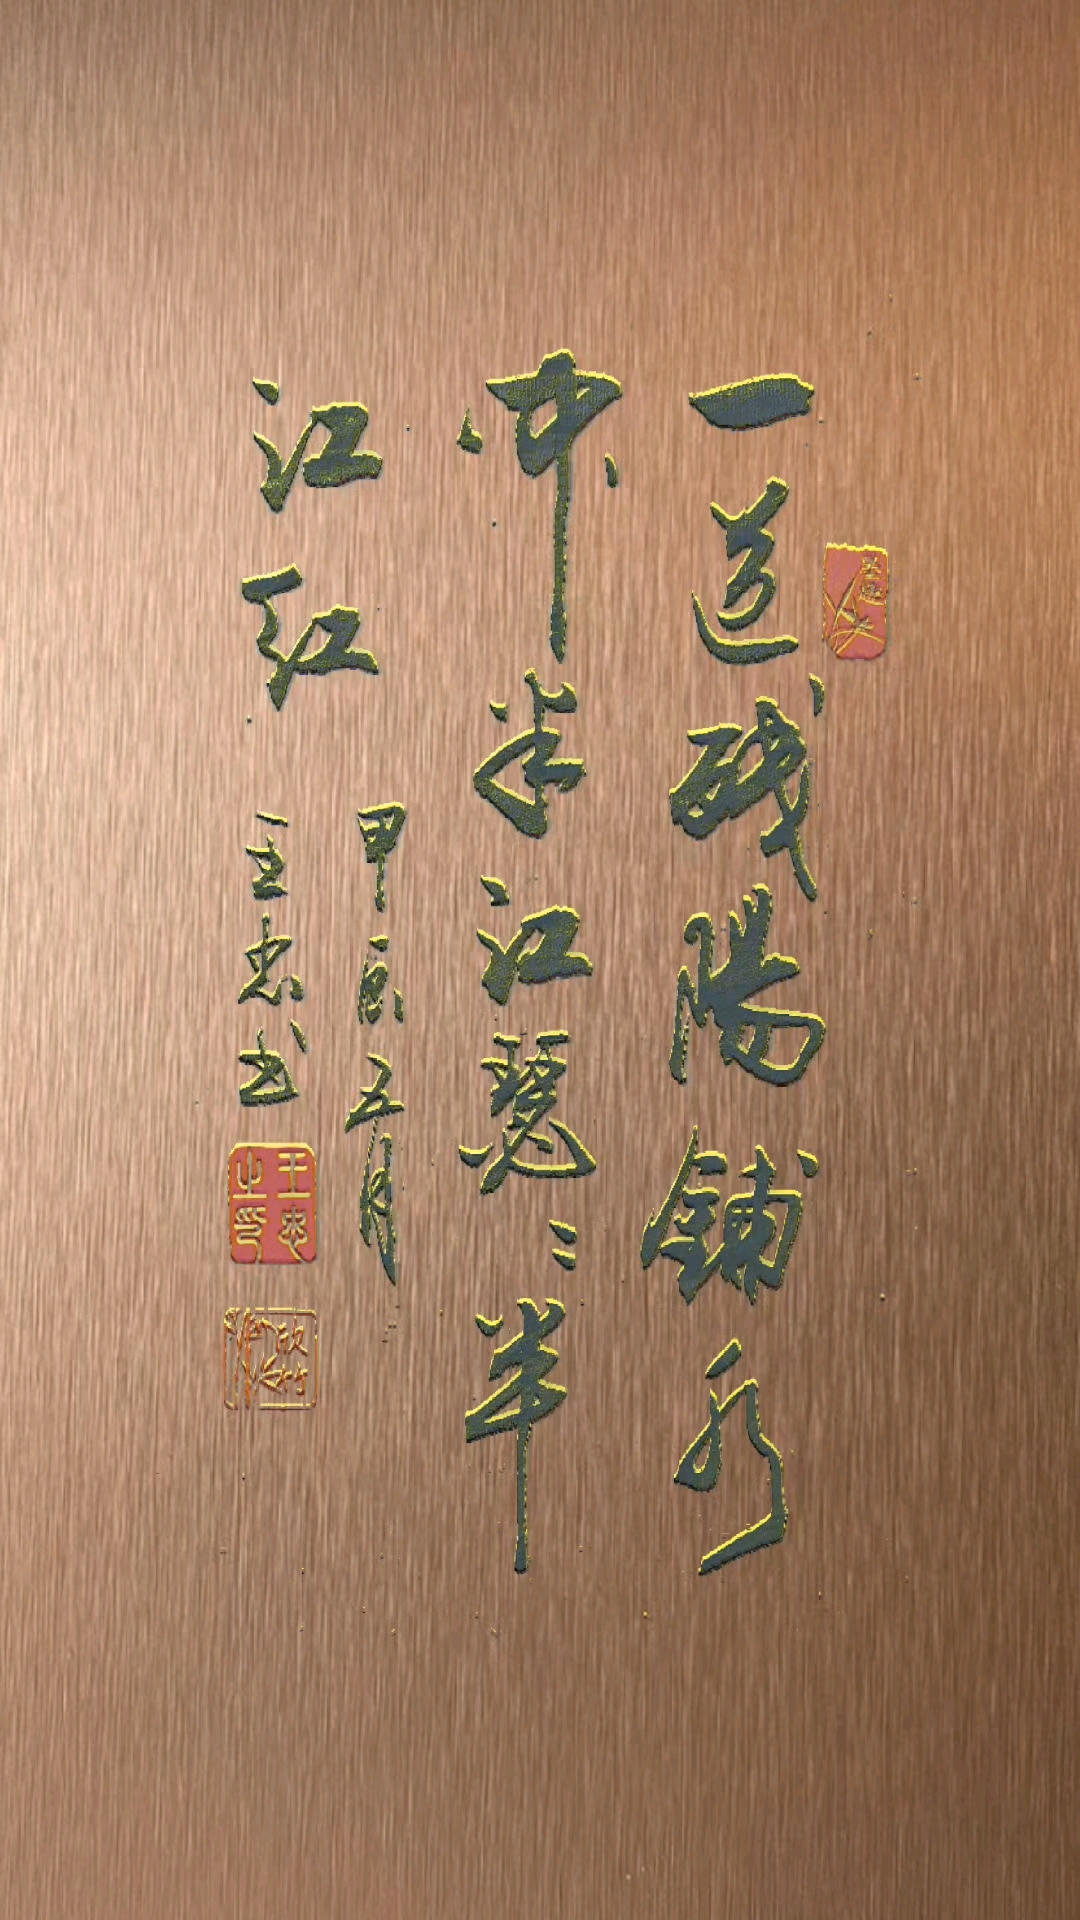 一道残陽鋪水
中半江瑟〻半
江红
甲辰五月
王忠书
王忠之印